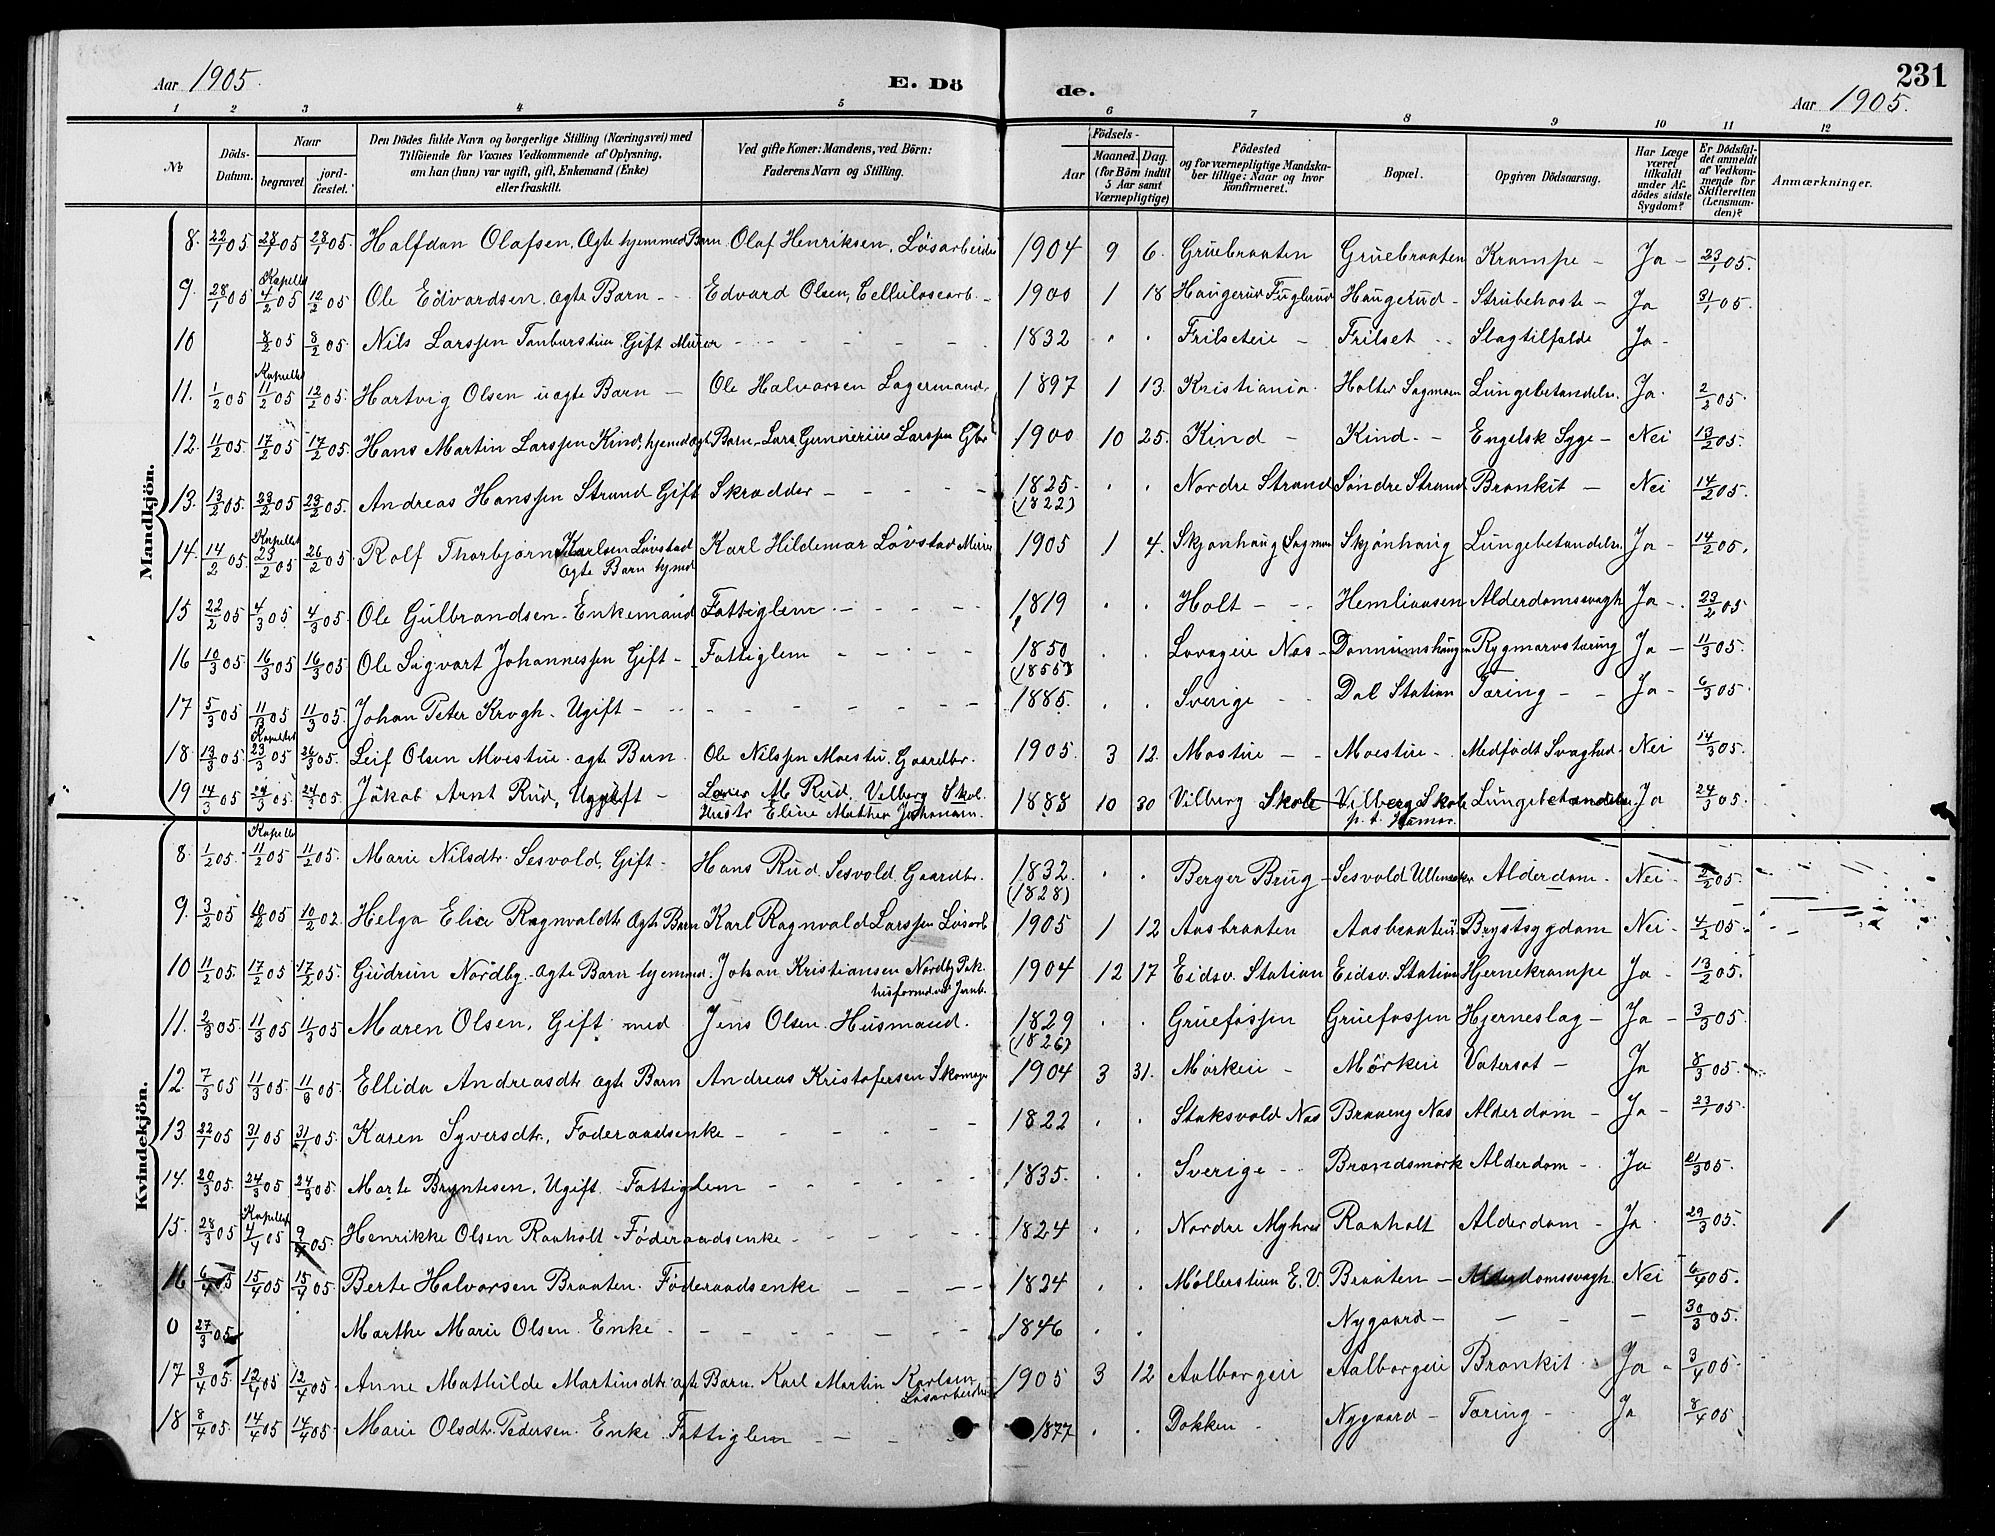 231
Aar 1905. E. Döde. Aar 1905.
1 2 3 4 5 6 7 8 9 10 11 12
№ Döds-Datum. Naar begravet. jord-fæstet. Den Dödes fulde Navn og borgerlige Stilling (Næringsvei) med Tilföiende for Voxnes Vedkommende af Oplysning, om han (hun) var ugift, gift, Enkemand (Enke) eller fraskilt. Ved gifte Koner: Mandens, ved Börn: Faderens Navn og Stilling. Födsels- Aar Maaned. Dag. (for Börn indtil 5 Aar samt Værnepligtige) Födested og for værnepligtige Mandskaber tillige: Naar og hvor konfirmeret. Bopæl. Opgiven Dödsaarsag. Har Læge været tilkaldt under Afdödes sidste Sygdom? Er Dödsfaldet anmeldt af Vedkommende for Skifteretten (Lensmanden)? Anmærkninger.
Mandkjön.
8. 22/1 05 28/1 05 28/1 05. Halfdan Olafsen. Ægte hjemmed Barn Olaf Henriksen, Løsarbeider 1904 9 6. Gruebraaten Gruebraaten Krampe - Ja - 23/1 05.
9. 28/1 05 Kapellet 4/2 05 12/2 05 Ole Edvardsen. ægte Barn - Edvard Olsen, Cellulosearb. 1900 1 18 Haugerud Fuglerud Haugerud - Strubehoste - Ja 31/1 05.
10 8/2 05 8/2 05. Nils Larssen Gift Murer - - - - 1832 . . Frilseteie - Frilset - Slagtilfælde Ja -
11. 1/2 05 Kapellet 11/2 05 12/2 05. Hartvig Olsen uægte Barn - Ole Halvorsen Lagermand. 1897 1 13. Kristiania. Holter Sagmoen Lungebetændelse. Ja. 2/2 05.
12. 11/2 05 17/2 05 17/2 05. Hans Martin Larssen Kind, hjemd ægt Barn - Lars Gunnerius Larssen Gbr 1900 10 25. Kind - Kind. - Engelsk Syge - Nei 13/2 05.
13. 13/2 05. 23/2 05 23/2 05. Andreas Hanssen Strand Gift Skrædder - - - - 1825. (1822) . . Nordre Strand Søndre Strand Bronkit - Nei 14/2 05.
14. 14/2 05. Kapellet 23/2 05 26/2 05 Rolf Thorbjørn Karlsen Løvstad Ægte Barn hjmd Karl Hildemar Løvstad Murer 1905 1 4. Skjønhaug Sagmoen Skjønhaug Lungebetændelse. Ja - 14/2 05.
15 22/2 05 4/3 05 4/3 05. Ole Gulbrandsen - Enkemand Fattiglem - - - 1819 . . Holt - - Hemliaasen Alderdomssvagh Ja - 23/2 05
16 10/3 05 16/3 05 16/3 05 Ole Sigvart Johannessen Gift - Fattiglem - - - 1850 (1855) . . Lovageie Næs - Donnumshaugen Rygmarvstæring Ja - 11/3 05.
17 5/3 05 11/3 05 11/3 05. Johan Peter Krogh. Ugift - - - - 1885. . . Sverige - Dal Station Tæring - - Ja - 6/3 05.
18. 13/3 05. Kapellet 23/3 05 26/3 05. Leif Olsen Moestue. ægte Barn. Ole Nilssen Moestu. Gaardbr. 1905. 3 12. Mostue - - Moestue - Medfødt Svaghed. Nei 14/3 05.
19 14/3 05 24/3 05. 24/3 05. Jakob Arnt Rud, Ugift - Lærer M Rud, Vilberg Skol. Hustr Elise Mathea Johannsn. 1888 10 30 Vilberg Skole Vilberg Skole p. t. Hamar. Lungebetændelse. Ja 24/3 05.
Kvindekjön.
8. 1/2 05. Kapellet 11/2 05 11/2 05. Marie Nilsdtr Sesvold, Gift - Hans Rud Sesvold, Gaardbr. 1832. (1828) . . Berger Brug - Sesvold Ullensaker Alderdom. Nei - 2/2 05.
9. 3/2 05 10/2 05 10/2 02. Helga Elise Ragnvaldtr Ægte Barn Karl Ragnvald Larssen Løsarb 1905 1 12 Aasbraaten Aasbraaten Brystsygdom Nei - 4/2 05 -
10 11/2 05. 17/2 05 17/2 05. Gudrun Nordby. ægte Barn hjemmed. Johan Kristiansen Nordby Pakhusformd ved Jernb. 1904 12 17 Eidsv. Station Eidsv. Station Hjernekrampe Ja - 13/2 05.
11. 2/3 05. 11/3 05 11/3 05 Maren Olsen, Gift med Jens Olsen Husmand. 1829 (1826) . . Gruefossen Gruefossen Hjerneslag - Ja - 3/3 05.
12. 7/3 05 11/3 05 11/3 05. Ellida Andreasdtr Ægte Barn Andreas Kristofersen Skomager 1904 3 31. Mørkeie - Mörkeie Vatersot - Ja 8/3 05.
13 22/1 05 31/1 05 31/1 05. Karen Syversdtr, Föderaadsenke - - - 1822 . . Staksvold Næs Braaeng Næs Alderdom - Ja - 23/1 05
14. 20/3 05. 24/3 05 24/3 05. Marte Bryntesen, Ugift Fattiglem - - - 1835. . . Sverige - - Brandsmörk Alderdom - Ja 21/3 05.
15. 28/3 05 Kapellet 7/4 05 9/4 05. Henrikke Olsen Raaholt - Föderaadsenke - - - 1824 . . Nordre Myhrer Raaholt Alderdom - Ja. 29/3 05.
16 6/4 05 15/4 05 15/4 05 Berte Halvorsen Braaten. Föderaadsenke - - - 1834 . . Møllerstuen E. V. Braaten - Alderdomssvagh. Nei 6/4 05.
0 27/3 05. Marthe Marie Olsen. Enke - - - 1846 . . Nygaard - - - 30/3 05.
17 3/4 05. 12/4 05 12/4 05. Anne Mathilde Martinsdtr ægte Barn. Karl Martin Karlsen Løsarbeider 1905 3 12 Aalborgeie Aalborgeie Bronkit. Ja - 3/4 05.
18 8/4 05. 14/4 05 14/4 05. Marie Olsdtr. Pedersen. Enke. Fattiglem - - - 1877 . . Dokken - Nygaard - Tæring - Ja 8/4 05.